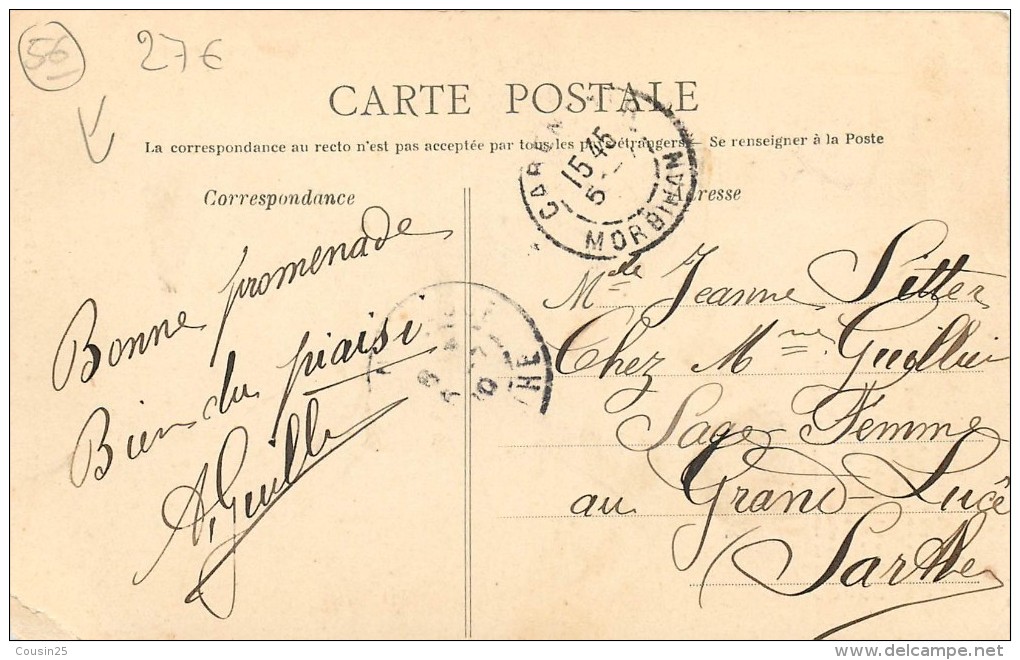 56
27€
CARTE POSTALE
La correspondance au recto n'est pas acceptée par tous les pays étrangers — Se renseigner à la Poste
Correspondance
Adresse
15 45
5
MORBIHAN
Bonne promenade
Bien du plaisir
A. Guill
Mlle Jeanne
Chez Mme
Sage Femme
au Grand-Lucé
Sarthe
Cousin25
www.delcampe.net